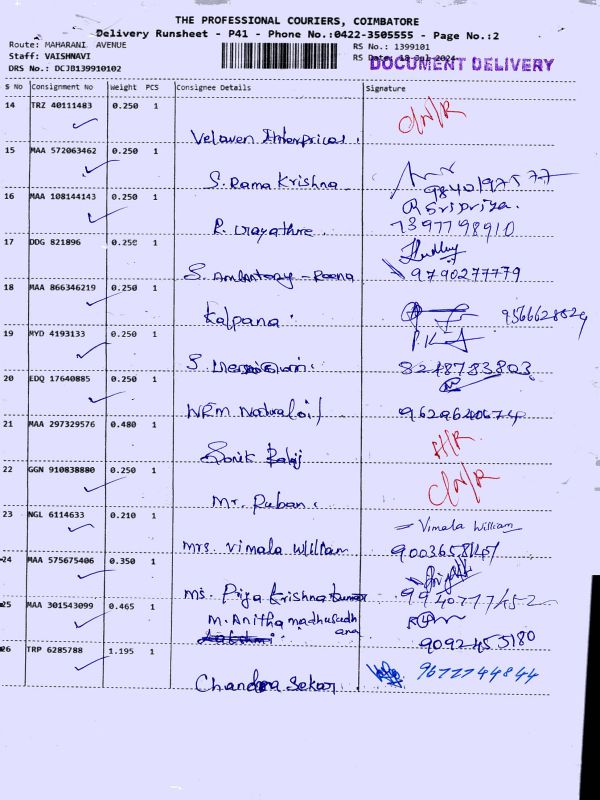 THE PROFESSIONAL COURIERS, COIMBATORE
Delivery Runsheet - P41 - Phone No.:0422-3505555 - Page No.:2
Route: MAHARANI AVENUE RS No.: 1399101
Staff: VAISHNAVI RS Date: 18-Jul-2024
DOCUMENT DELIVERY
DRS No.: DCJB139910102
S No Consignment No Weight PCS Consignee Details Signature
14 TRZ 40111483 0.250 1
Velaven Enterprices.
15 MAA 572063462 0.250 1
S. Rama Krishna 9840197577
16 MAA 108144143 0.250 1 R Sri priya.
7397798910
17 DDG 821896 0.250 1
9790277779
18 MAA 866346219 0.250 1
Kalpana.
19 MYD 4193133 0.250 1 P.K.A
S. 8248783803
20 EDQ 17640885 0.250 1
WRM Natural oil
21 MAA 297329576 0.480 1
22 GGN 910838880 0.250 1
Mr. Ruban.
23 NGL 6114633 0.210 1 Vimala William
mrs. vimala William
24 MAA 575675406 0.350 1
ms. Priya Krishna kumar 9940777452
25 MAA 301543099 0.465 1 M. Anitha madhusudh
ana 9092455180
26 TRP 6285788 1.195 1 9677744844
Chandra Sekar.